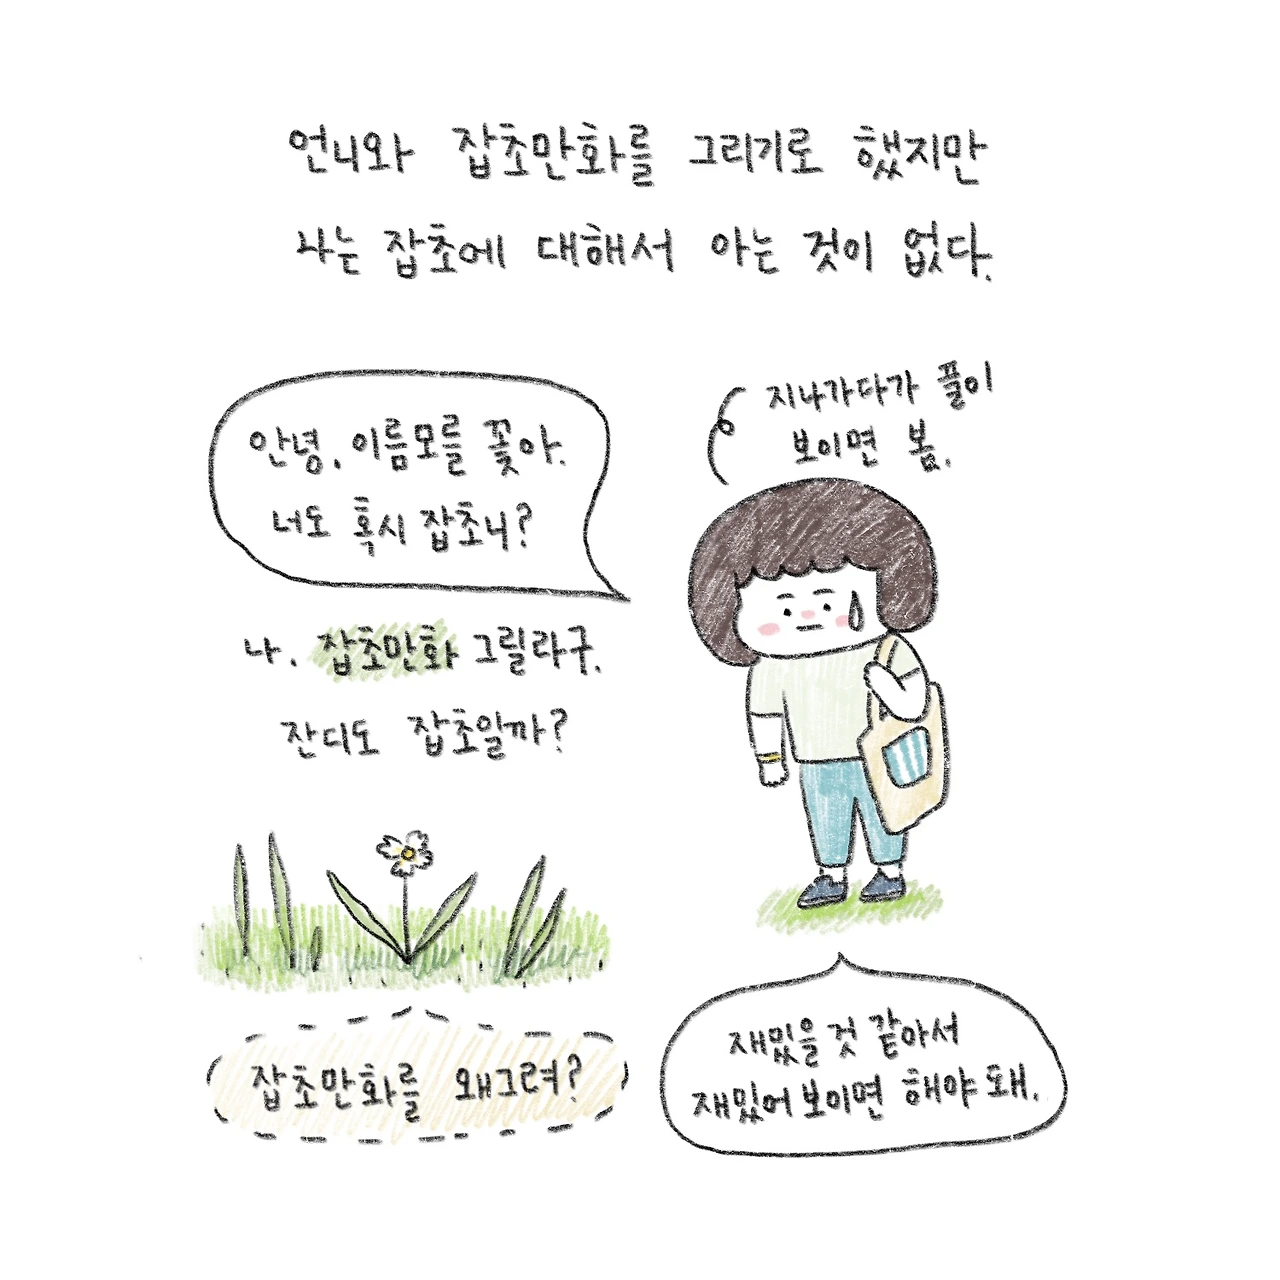 언니와 잡초만화를 그리기로 했지만
나는 잡초에 대해서 아는 것이 없다.
안녕, 이름모를 꽃아.
너도 혹시 잡초니?
지나가다가 풀이
보이면 봄.
나. 잡초만화 그릴라구.
잔디도 잡초일까?
잡초만화를 왜그려?
재밌을 것 같아서
재밌어 보이면 해야 돼.